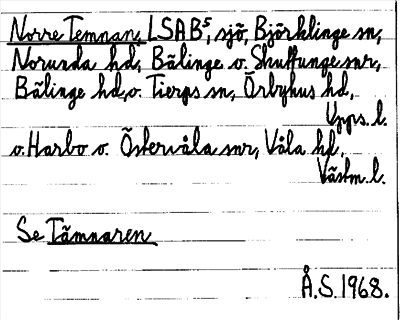 Norre Temnan LSAB⁵, sjö, Björklinge sn,
Norunda hd, Bälinge o. Skuttunge snr,
Bälinge hd, o. Tierps sn, Örbyhus hd,
Upps. l.
o. Harbo o. Östervåla snr, Våla hd,
Västm. l.
Se Tämnaren
Å.S. 1968.